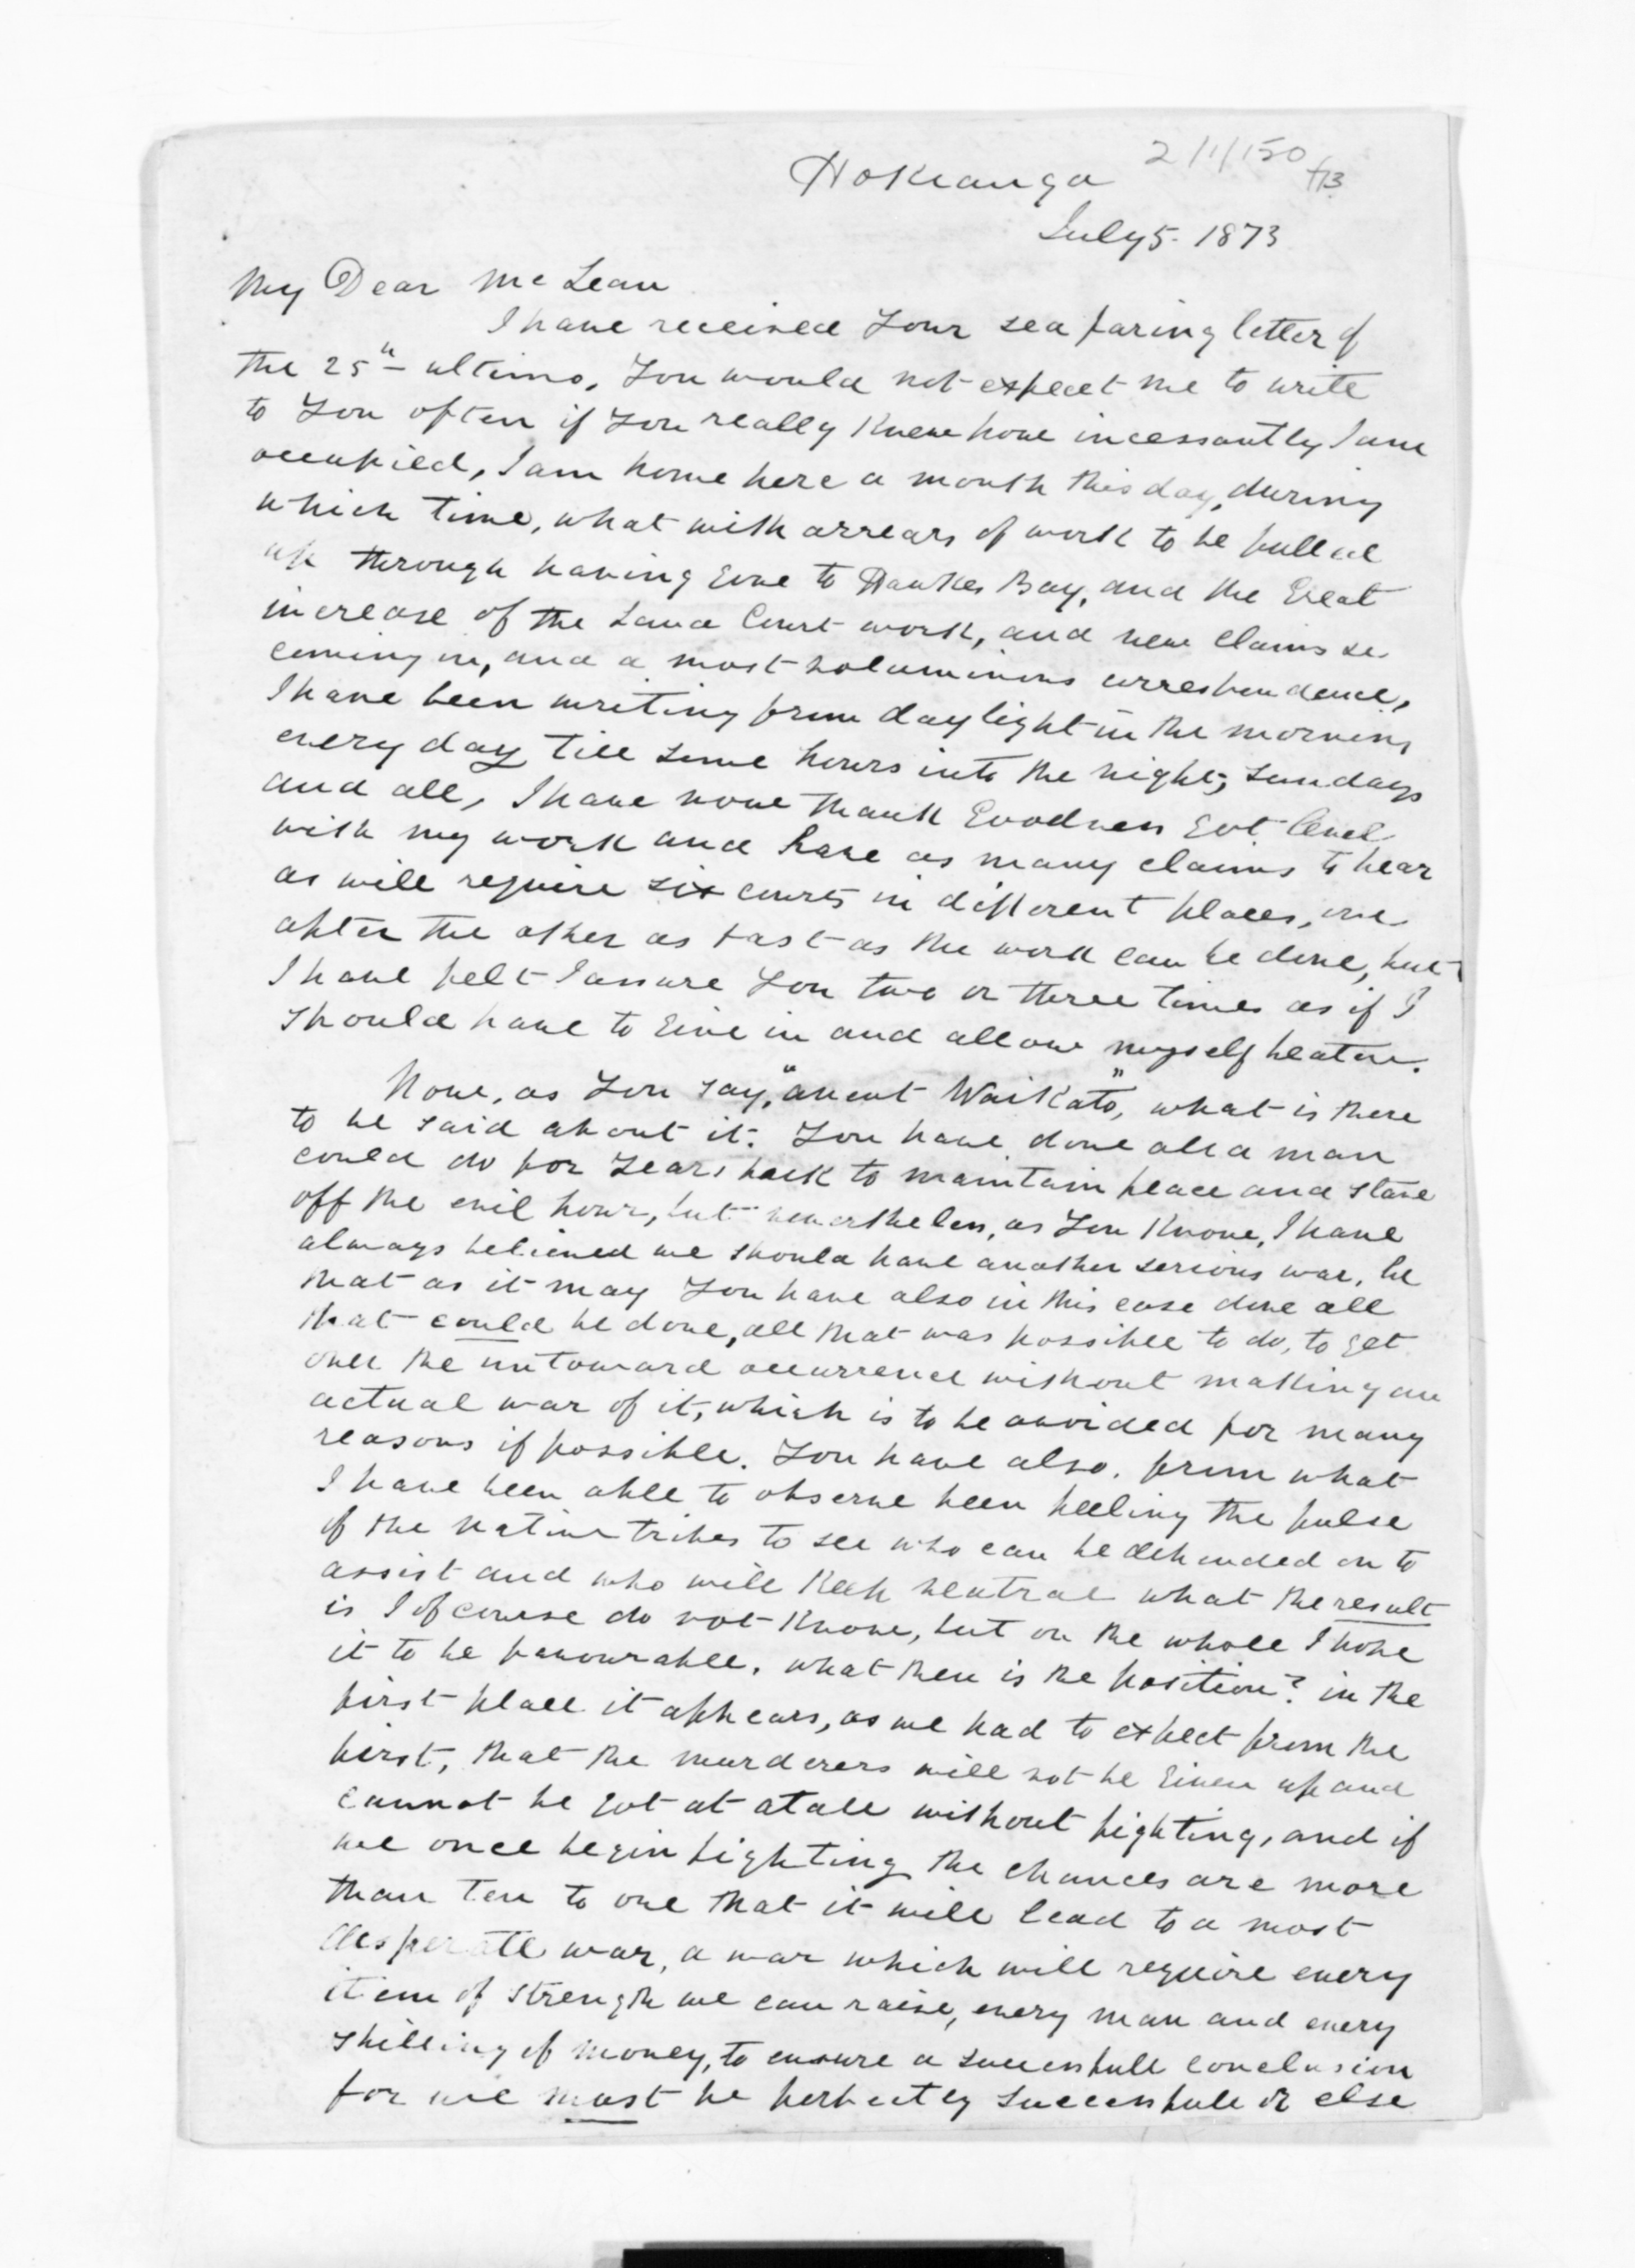 Hokianga
2/1/150
July 5. 1873
My Dear McLean
I have received Your sea faring letter of
the 25th ultimo, You would not expect me to write
to You often if You really Knew how incessantly I am
occupied, I am home here a month this day, during
which time, what with arrears of work to be pulled
up through having gone to Hawkes Bay, and the Great
increase of the Land Court work, and new claims
coming in, and a most voluminous correspondence,
I have been writing from daylight in the morning
every day till some hours into the night, Sundays
and all, I have now thank Goodness Got level
with my work and have as many claims to hear
as will require six courts in different places, one
after the other as fast as the work can be done, but
I have felt I assure You two or three times as if I
should have to Give in and allow myself beaten.
Now, as You say, "anent Waikato", what is there
to be said about it. You have done all a man
could do for Years back to maintain peace and stave
off the evil hour, but nevertheless, as You Know, I have
always believed we should have another serious war, be
that as it may You have also in this case done all
that could be done, all that was possible to do, to get
over the untoward occurrence without making an
actual war of it, which is to be avoided for many
reasons if possible. You have also, from what
I have been able to observe been feeling the pulse
of the native tribes to see who can be depended on to
assist and who will Keep neutral what the result
is I of course do not Know, but on the whole I hope
it to be favourable. what then is the position? in the
first place it appears, as we had to expect from the
first, that the murderers will not be Given up and
cannot be got at atall without fighting, and if
we once begin fighting the chances are more
than Ten to one that it will lead to a most
desperate war, a war which will require every
item of strength we can raise, every man and every
shilling of money, to ensure a successfull conclusion
for we must be perfectly successfull or else